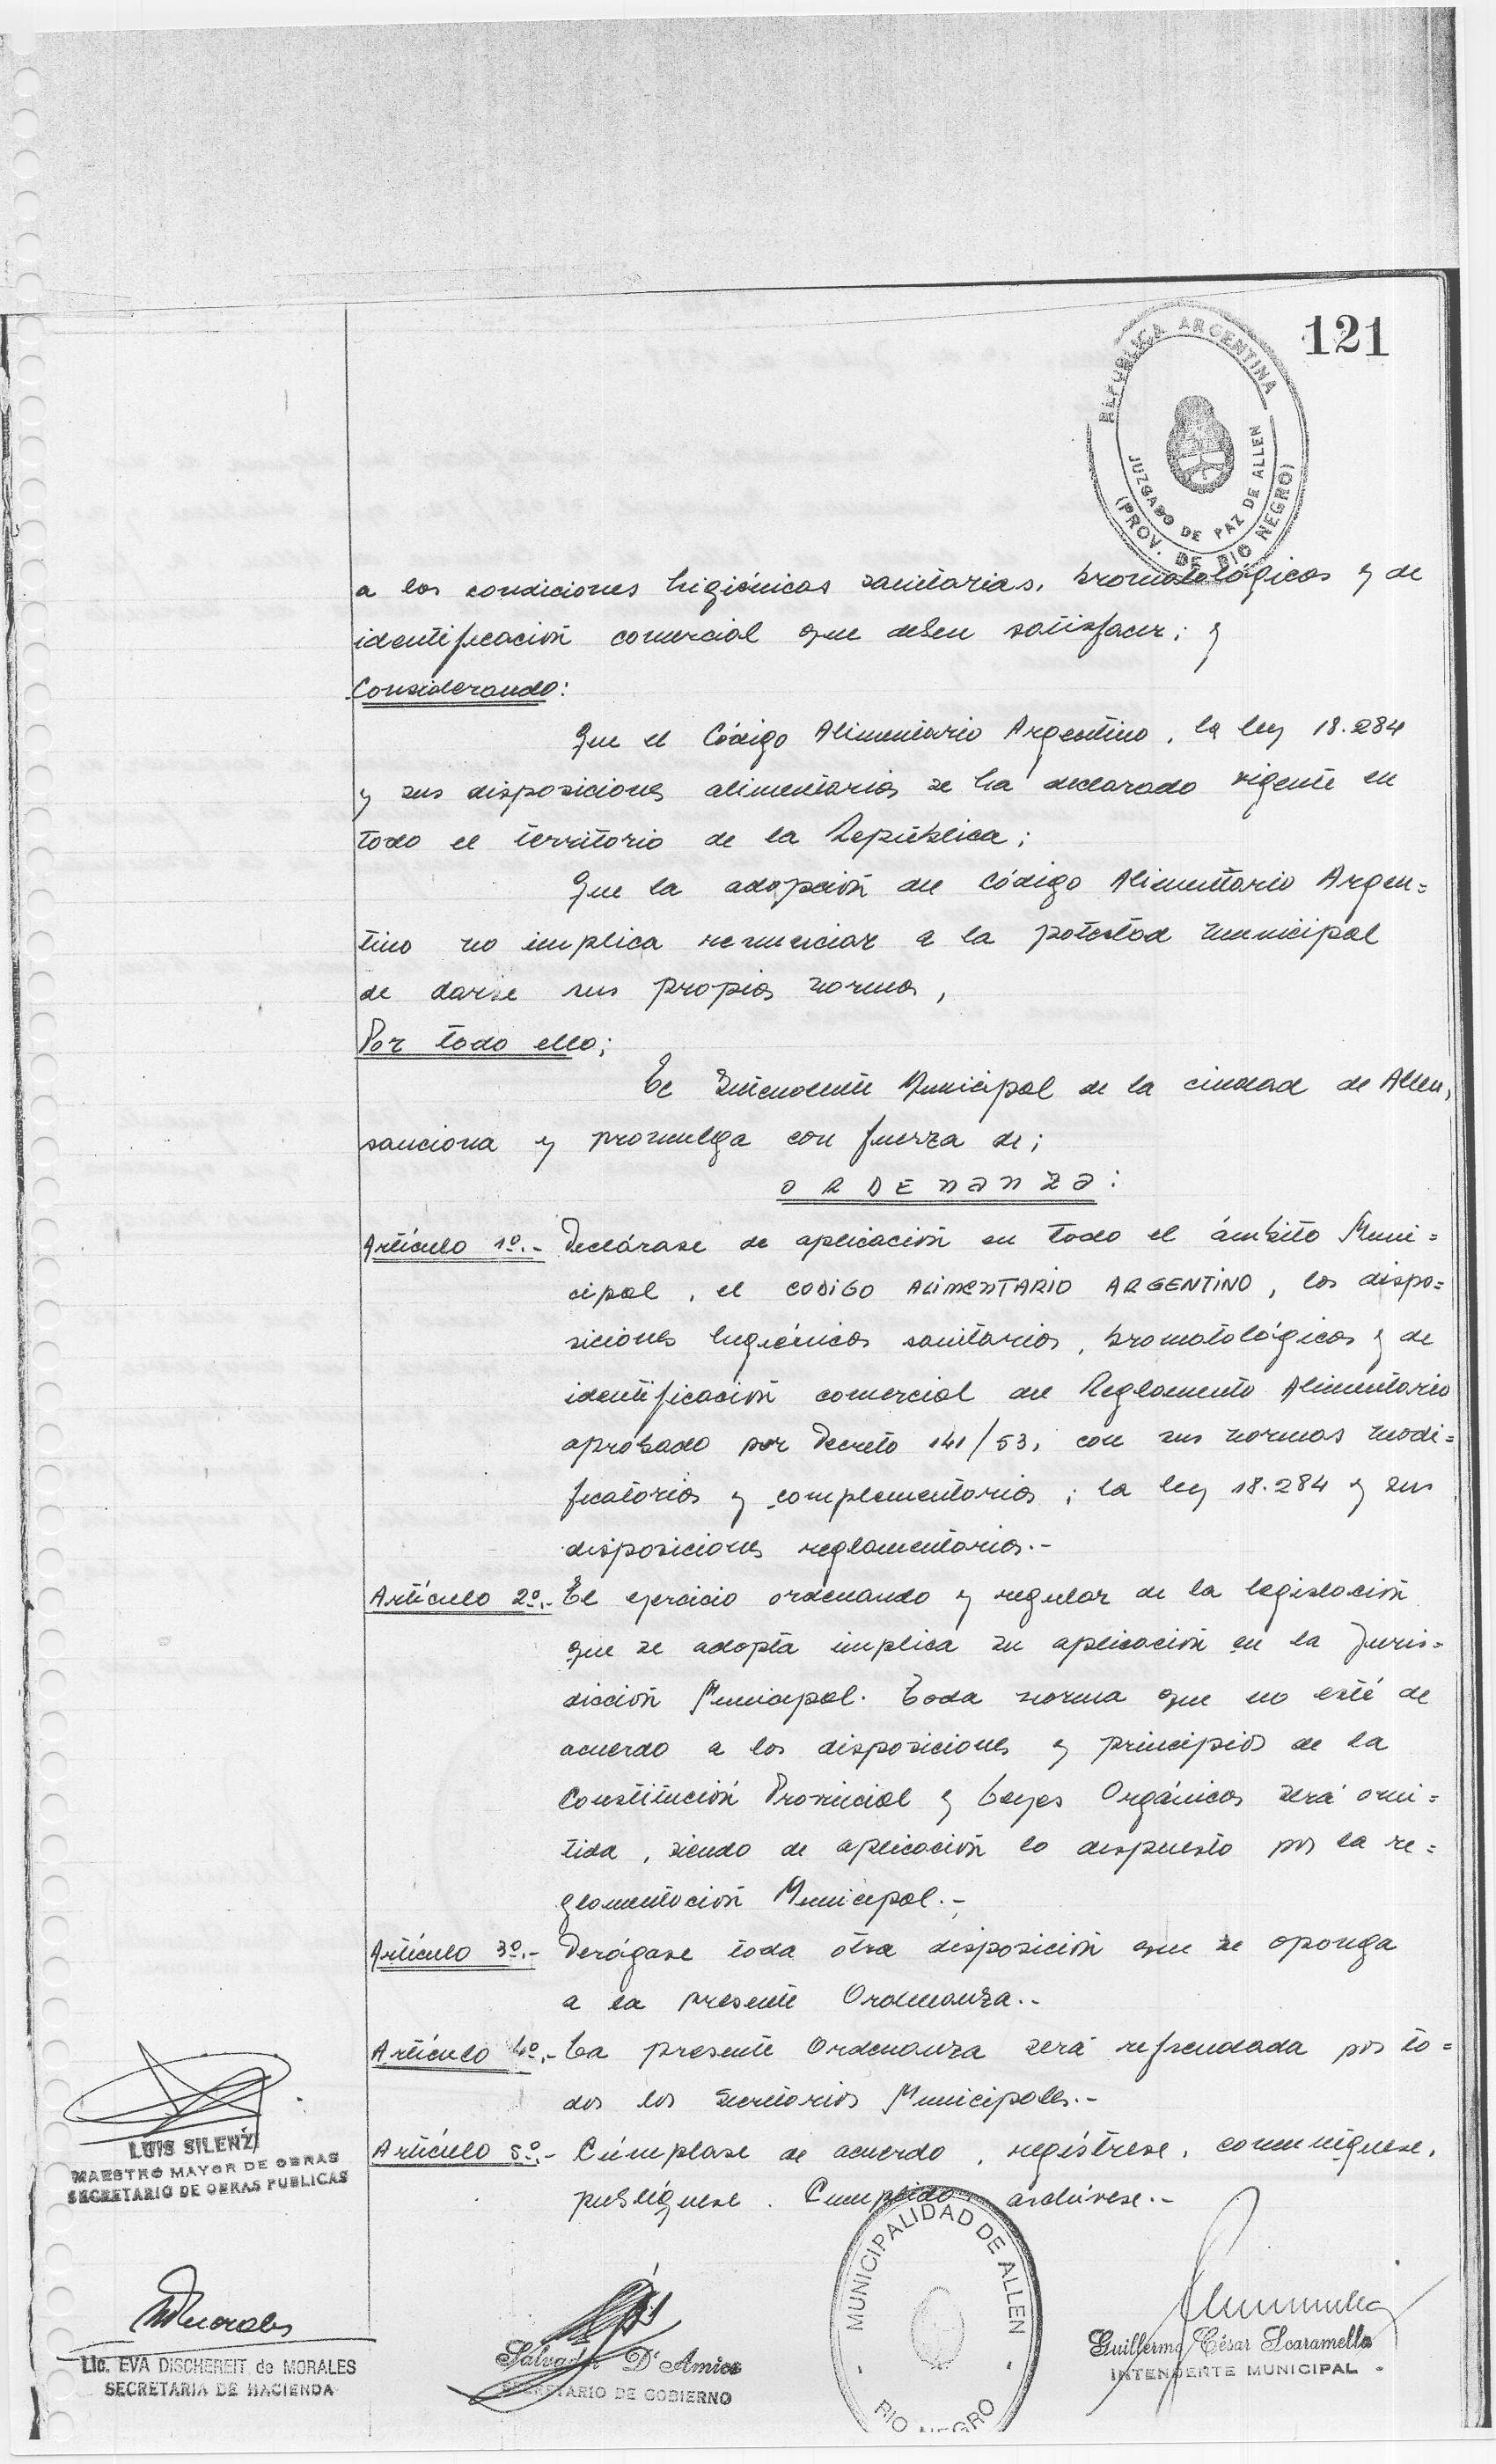 121
REPUBLICA ARGENTINA
JUZGADO DE PAZ DE ALLEN
(PROV. DE RIO NEGRO)
a las condiciones higiénicas sanitarias, bromatológicas y de
identificación comercial que deben satisfacer; y
Considerando:
Que el Código Alimentario Argentino, la ley 18.284
y sus disposiciones alimentarias se ha declarado vigente en
todo el territorio de la República;
Que la adopción del Código Alimentario Argen=
tino no implica renunciar a la potestad municipal
de darse sus propias normas,
Por todo ello;
El Intendente Municipal de la ciudad de Allen,
sanciona y promulga con fuerza de;
ORDENANZA:
Artículo 1º.- Declárase de aplicación en todo el ámbito Muni=
cipal, el CODIGO ALIMENTARIO ARGENTINO, las dispo=
siciones higiénicas sanitarias, bromatológicas y de
identificación comercial del Reglamento Alimentario
aprobado por Decreto 141/53, con sus normas modi=
ficatorias y complementarias; la ley 18.284 y sus
disposiciones reglamentarias.-
Artículo 2º.- El ejercicio ordenando y regular de la legislación
que se adopta implica su aplicación en la Juris=
dicción Municipal. Toda norma que no esté de
acuerdo a las disposiciones y principios de la
Constitución Provincial y Leyes Orgánicas será omi=
tida, siendo de aplicación lo dispuesto por la re=
glamentación Municipal.-
Artículo 3º.- Derógase toda otra disposición que se oponga
a la presente Ordenanza.-
Artículo 4º.- La presente Ordenanza será refrendada por to=
dos los Secretarios Municipales.-
Artículo 5º.- Cúmplase de acuerdo, regístrese, comuníquese,
publíquese. Cumplido archívese.-
LUIS SILENZI
MAESTRO MAYOR DE OBRAS
SECRETARIO DE OBRAS PUBLICAS
MUNICIPALIDAD DE ALLEN
RIO NEGRO
Lic. EVA DISCHEREIT de MORALES
SECRETARIA DE HACIENDA
Salvador D'Amico
SECRETARIO DE GOBIERNO
Guillermo César Scaramella
INTENDENTE MUNICIPAL